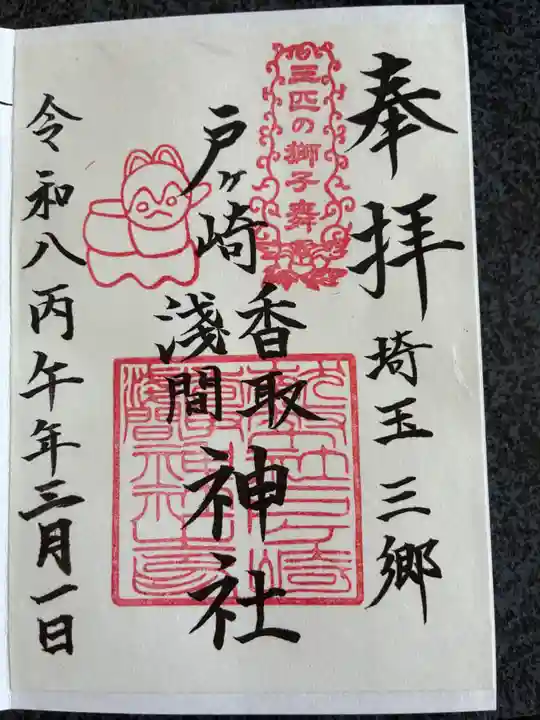 奉拝
埼玉三郷
三匹の獅子舞
戸ヶ崎
香取
淺間
神社
令和八丙午年三月一日